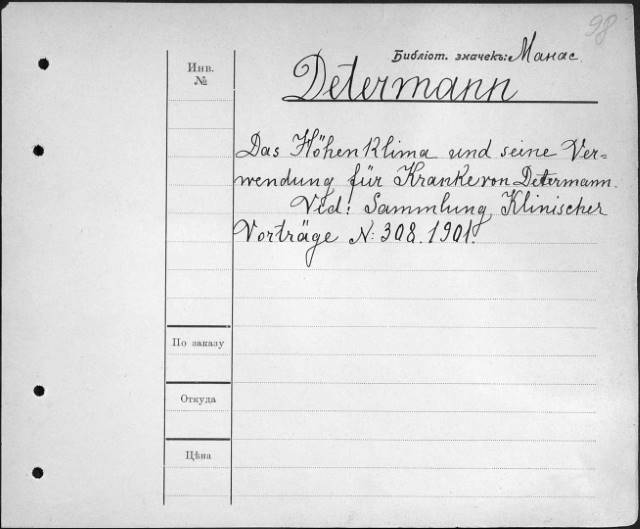 98
Библіот. значекъ: Манас.
Инв.
№
Determann
Das Höhenklima und seine Ver=
wendung für Kranke von Determann.
Vid: Sammlung Klinischer
Vorträge N: 308. 1901.
По заказу
Откуда
Цѣна